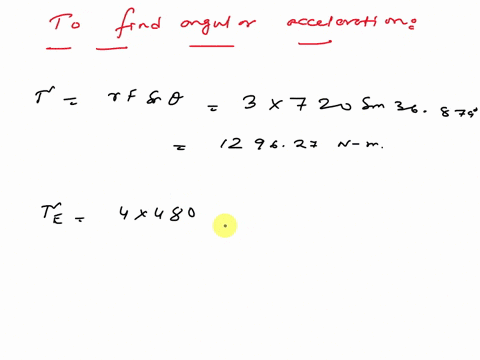 To find angular acceleration:
τ = r F Sin θ = 3 × 720 Sin 36.879°
= 1296.27 N-m.
τE = 4 × 480